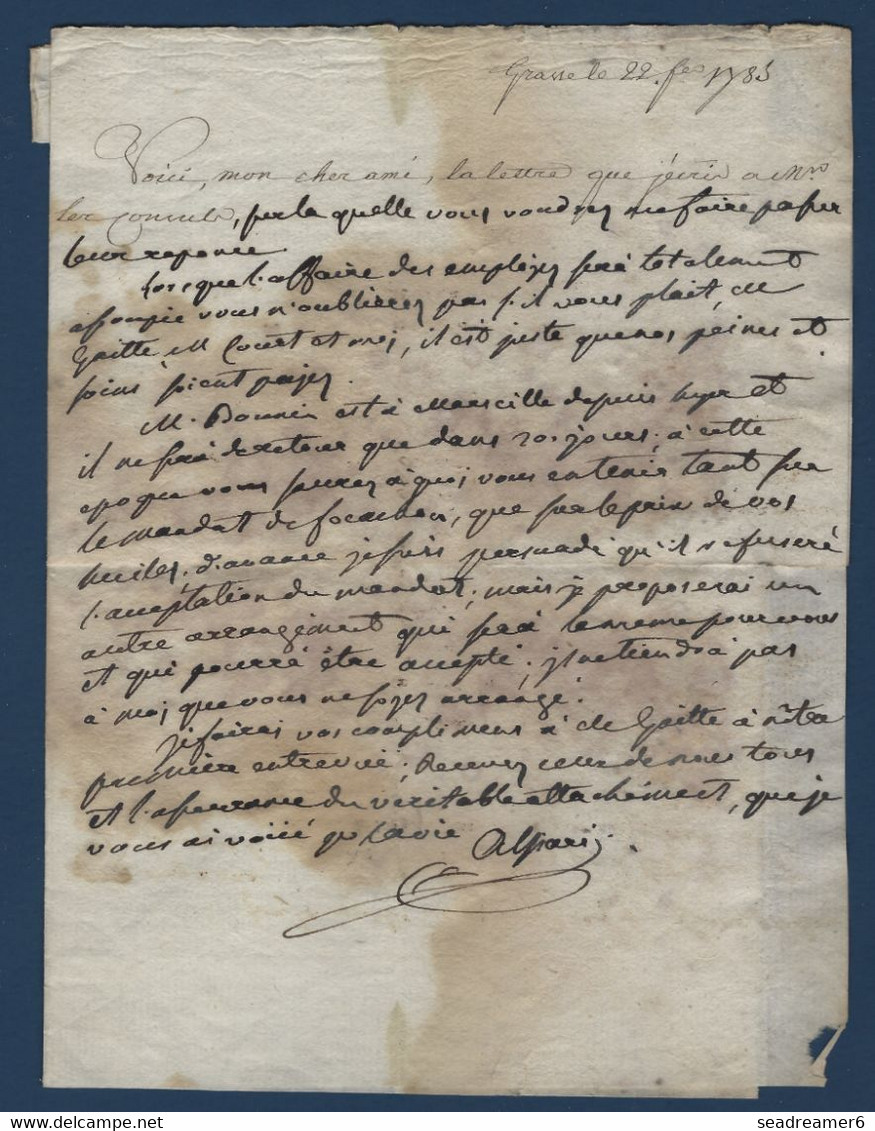 Grasse le 22. fer 1785
Voici, mon cher ami, la lettre que j'écris a Mrs
les consuls, sur la quelle vous voudrez me faire passer
leur reponce.
Lorsque l'affaire des employez sera totalement
assoupie vous n'oublierez pas s'il vous plait, de
Gaitte M Court et moi, il est juste que nos peines et
soins soient payez.
M. Bonnin est à Marseille depuis hyer et
il ne sera de retour que dans 20. jours; à cette
epoque vous saurez à quoi vous en tenir tant sur
le mandat de, que sur le prix de vos
huiles; d'avance je suis persuadé qu'il refuserà
l'acceptation du mandat; mais je proposerai un
autre arrangement qui sera le meme pour vous
et qui pourra être accepté; il ne tiendrà pas
à moi que vous ne soyez arrangé.
Je fairai vos complimens à de Gaitte à nôtre
première entrevüe; Recevez ceux de nous tous
et l'assurance du veritable attachément, que je
vous ai voüé pr la vie
seadreamer6